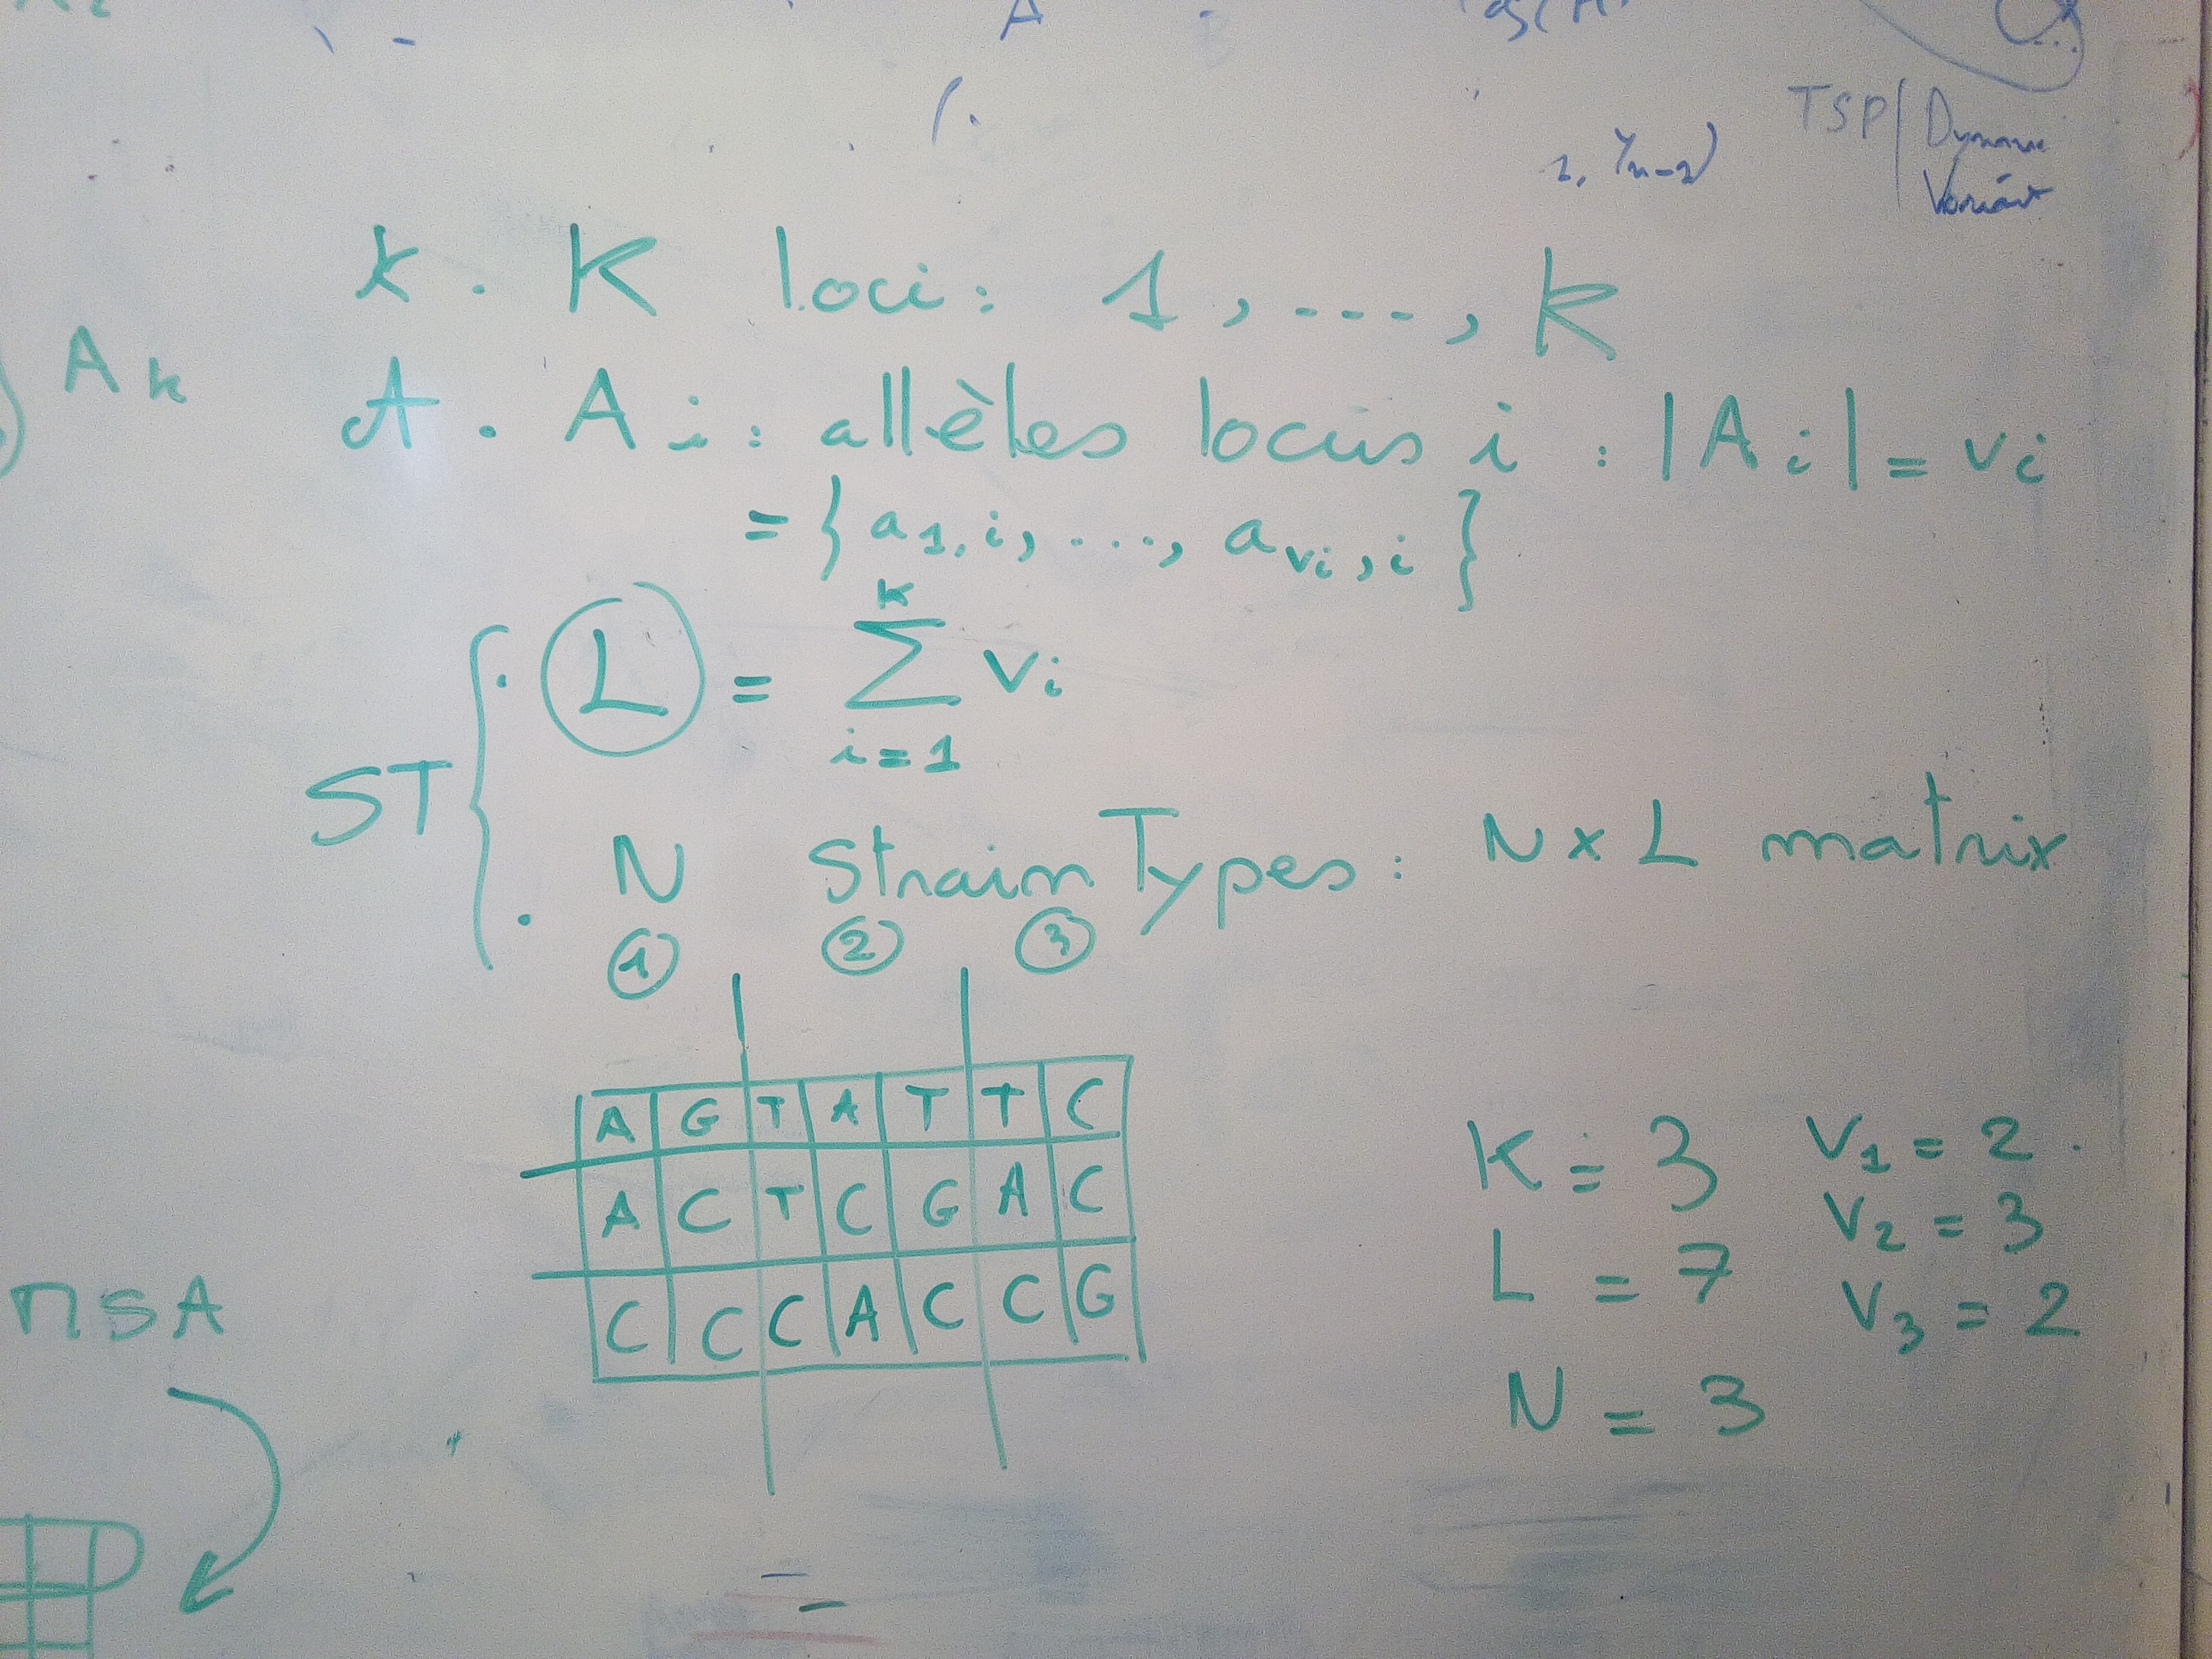 TSP | Dynamic
Variant
1, Yn-2)
K . K loci : 1 , ... , K
Ak
A . Ai : allèles locus i : |Ai| = vi
= { a1,i, ..., avi,i }
ST { . L = K ∑ i=1 vi
. N Strain Types : N x L matrix
1 2 3
A G T A T T C
A C T C G A C
C C C A C C G
K = 3 V1 = 2
V2 = 3
L = 7
V3 = 2
N = 3
MSA